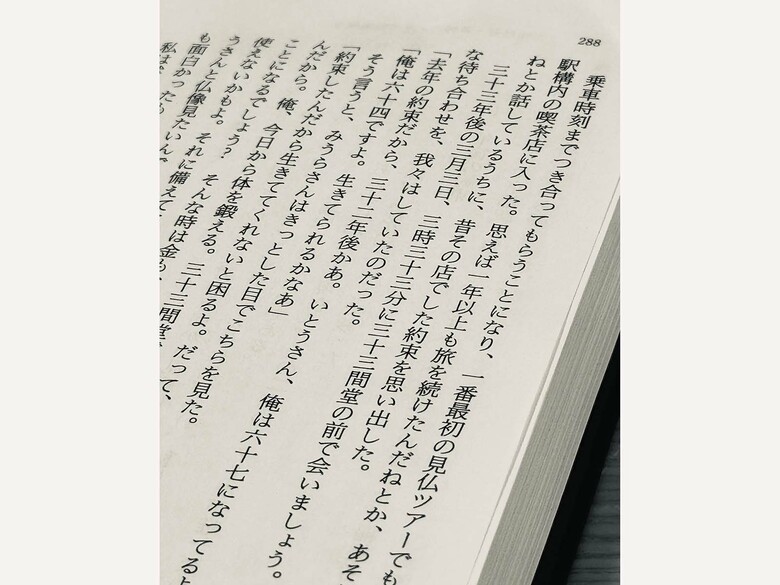 288
乗車時刻までつき合ってもらうことになり、一番最初の見仏ツアーでも
駅構内の喫茶店に入った。思えば一年以上も旅を続けたんだねとか、あそ
ねとか話しているうちに、昔その店でした約束を思い出した。
三十三年後の三月三日、三時三十三分に三十三間堂の前で会いましょう。
な待ち合わせを、我々はしていたのだった。
「去年の約束だから、三十二年後かあ。いとうさん、俺は六十七になってるよ
「俺は六十四ですよ。生きてられるかなあ」
そう言うと、みうらさんはきっとした目でこちらを見た。
「約束したんだから生きててくれないと困るよ。だって、
んだから。俺、今日から体を鍛える。三十三間堂
ことになるでしょう？　そんな時は金も、
使えないかもよ。それに備えて
うさんと仏像見たいんで
も面白かったも
私は